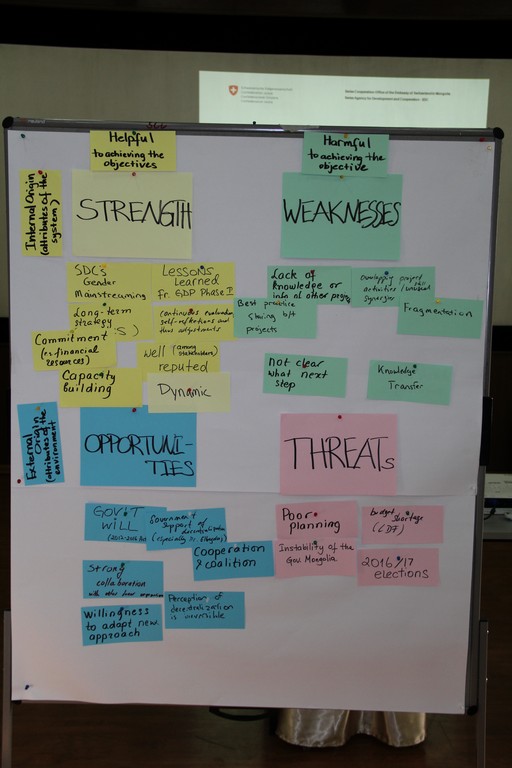 Helpful
to achieving the
objectives
Harmful
to achieving the
objective
Internal Origin
(attributes of the
system)
STRENGTH
WEAKNESSES
SDCs
Gender
Mainstreaming
LESSONS
Learned
fr. GDP Phase I
Long-term
strategy
continuous evaluation
self-reflections and
adjustments
Commitment
(es. financial
resources)
Well (among
stakeholders)
reputed
Capacity
building
Dynamic
Lack of
knowledge or
info of other
Overlapping project
activities
synergies
Best practice
sharing b/t
projects
Fragmentation
not clear
what next
step
Knowledge
Transfer
External Origin
(attributes of the
environment
OPPORTUNI-
TIES
THREATs
GOV'T
WILL
Government
support of
decentralization
Cooperation
& coalition
Strong
collaboration
Willingness
to adapt new
approach
Perception of
decentralization
is
Poor
planning
budget
shortage
(LDF)
Instability of the
Gov. Mongolia
2016/17
elections